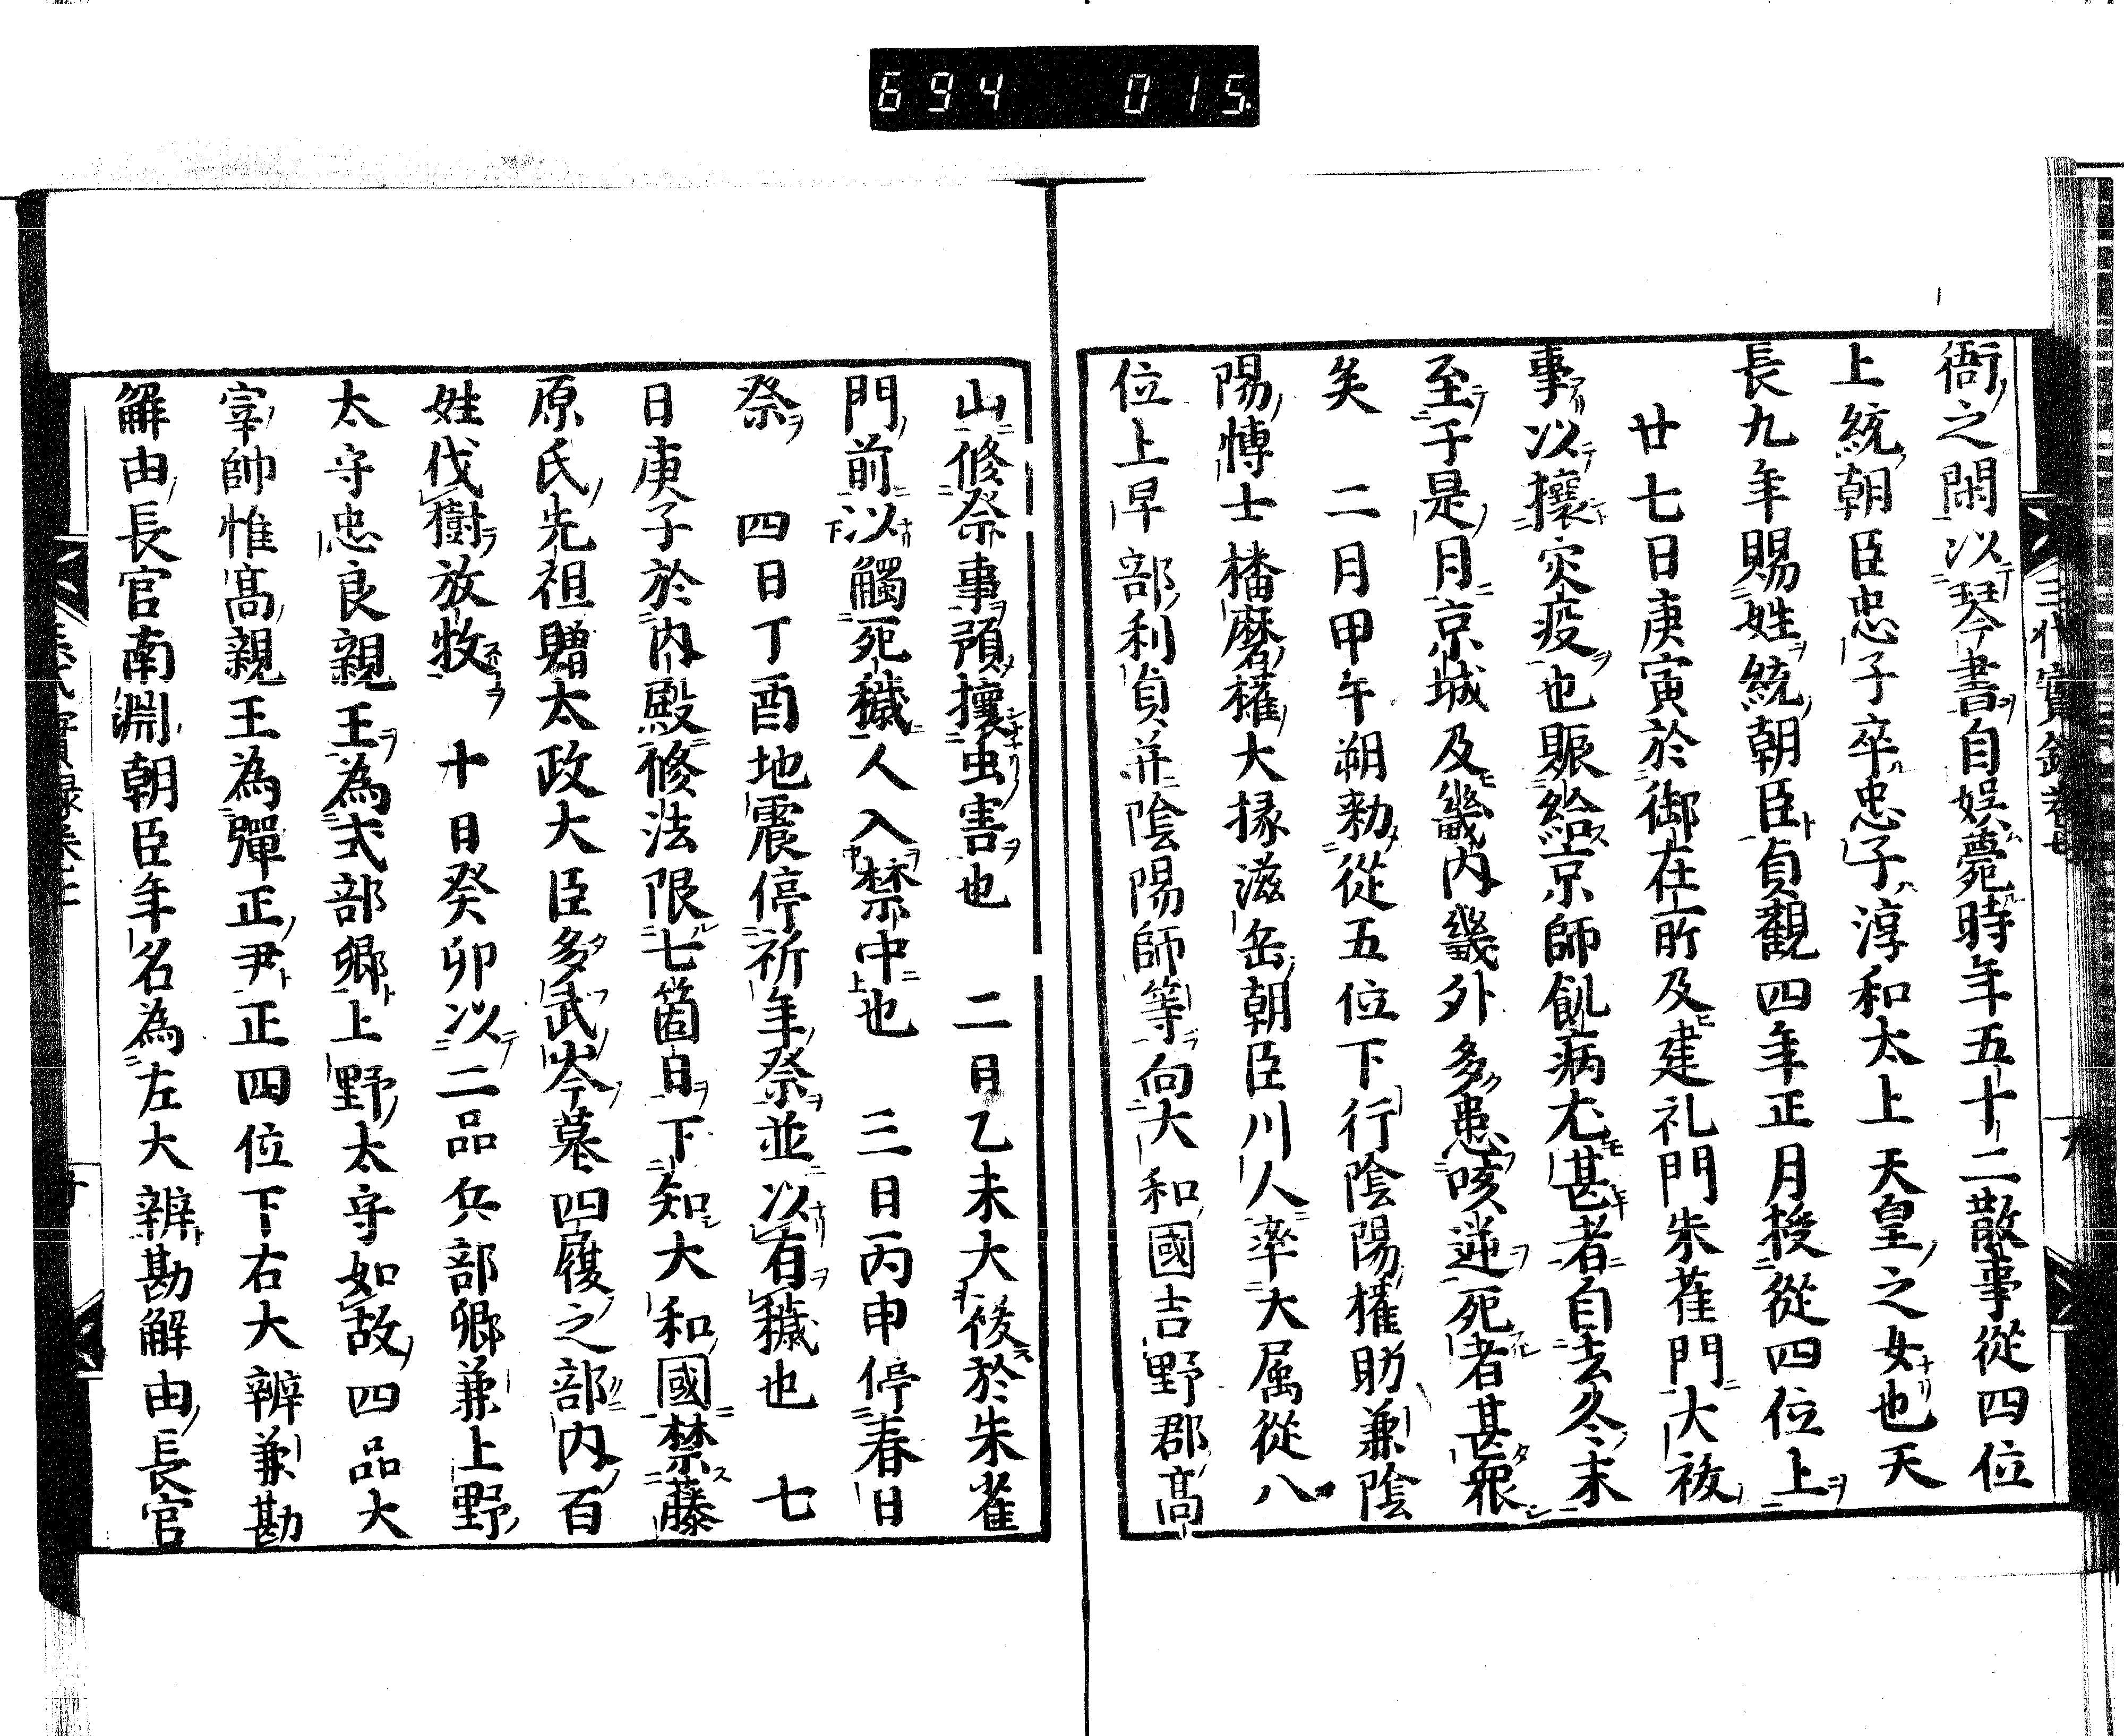 694 015
三代實録卷七
衙之閑以琴書自娯薨時年五十二散事從四位
上統朝臣忠子卒忠子淳和太上天皇之女也天
長九年賜姓統朝臣貞觀四年正月授從四位上
廿七日庚寅於御在所及建礼門朱雀門大祓
事以攘灾疫也賑給京師飢病尤甚者自去冬末
至于是月京城及畿内畿外多患咳逆死者甚衆
矣　二月甲午朔勅從五位下行陰陽權助兼陰
陽博士橎磨權大掾滋岳朝臣川人率大属從八
位上早部利貞并陰陽師等向大和國吉野郡髙
山修祭事預攘虫害也　二日乙未大祓於朱雀
門前以觸死穢人入禁中也　三日丙申停春日
祭　四日丁酉地震停祈年祭並以有穢也　七
日庚子於内殿修法限七箇日下知大和國禁藤
原氏先祖贈太政大臣多武岑墓四履之部内百
姓伐樹放牧　十日癸卯以二品兵部卿兼上野
太守忠良親王為式部卿上野太守如故四品大
宰帥惟髙親王為彈正尹正四位下右大辨兼勘
解由長官南淵朝臣年名為左大辨勘解由長官